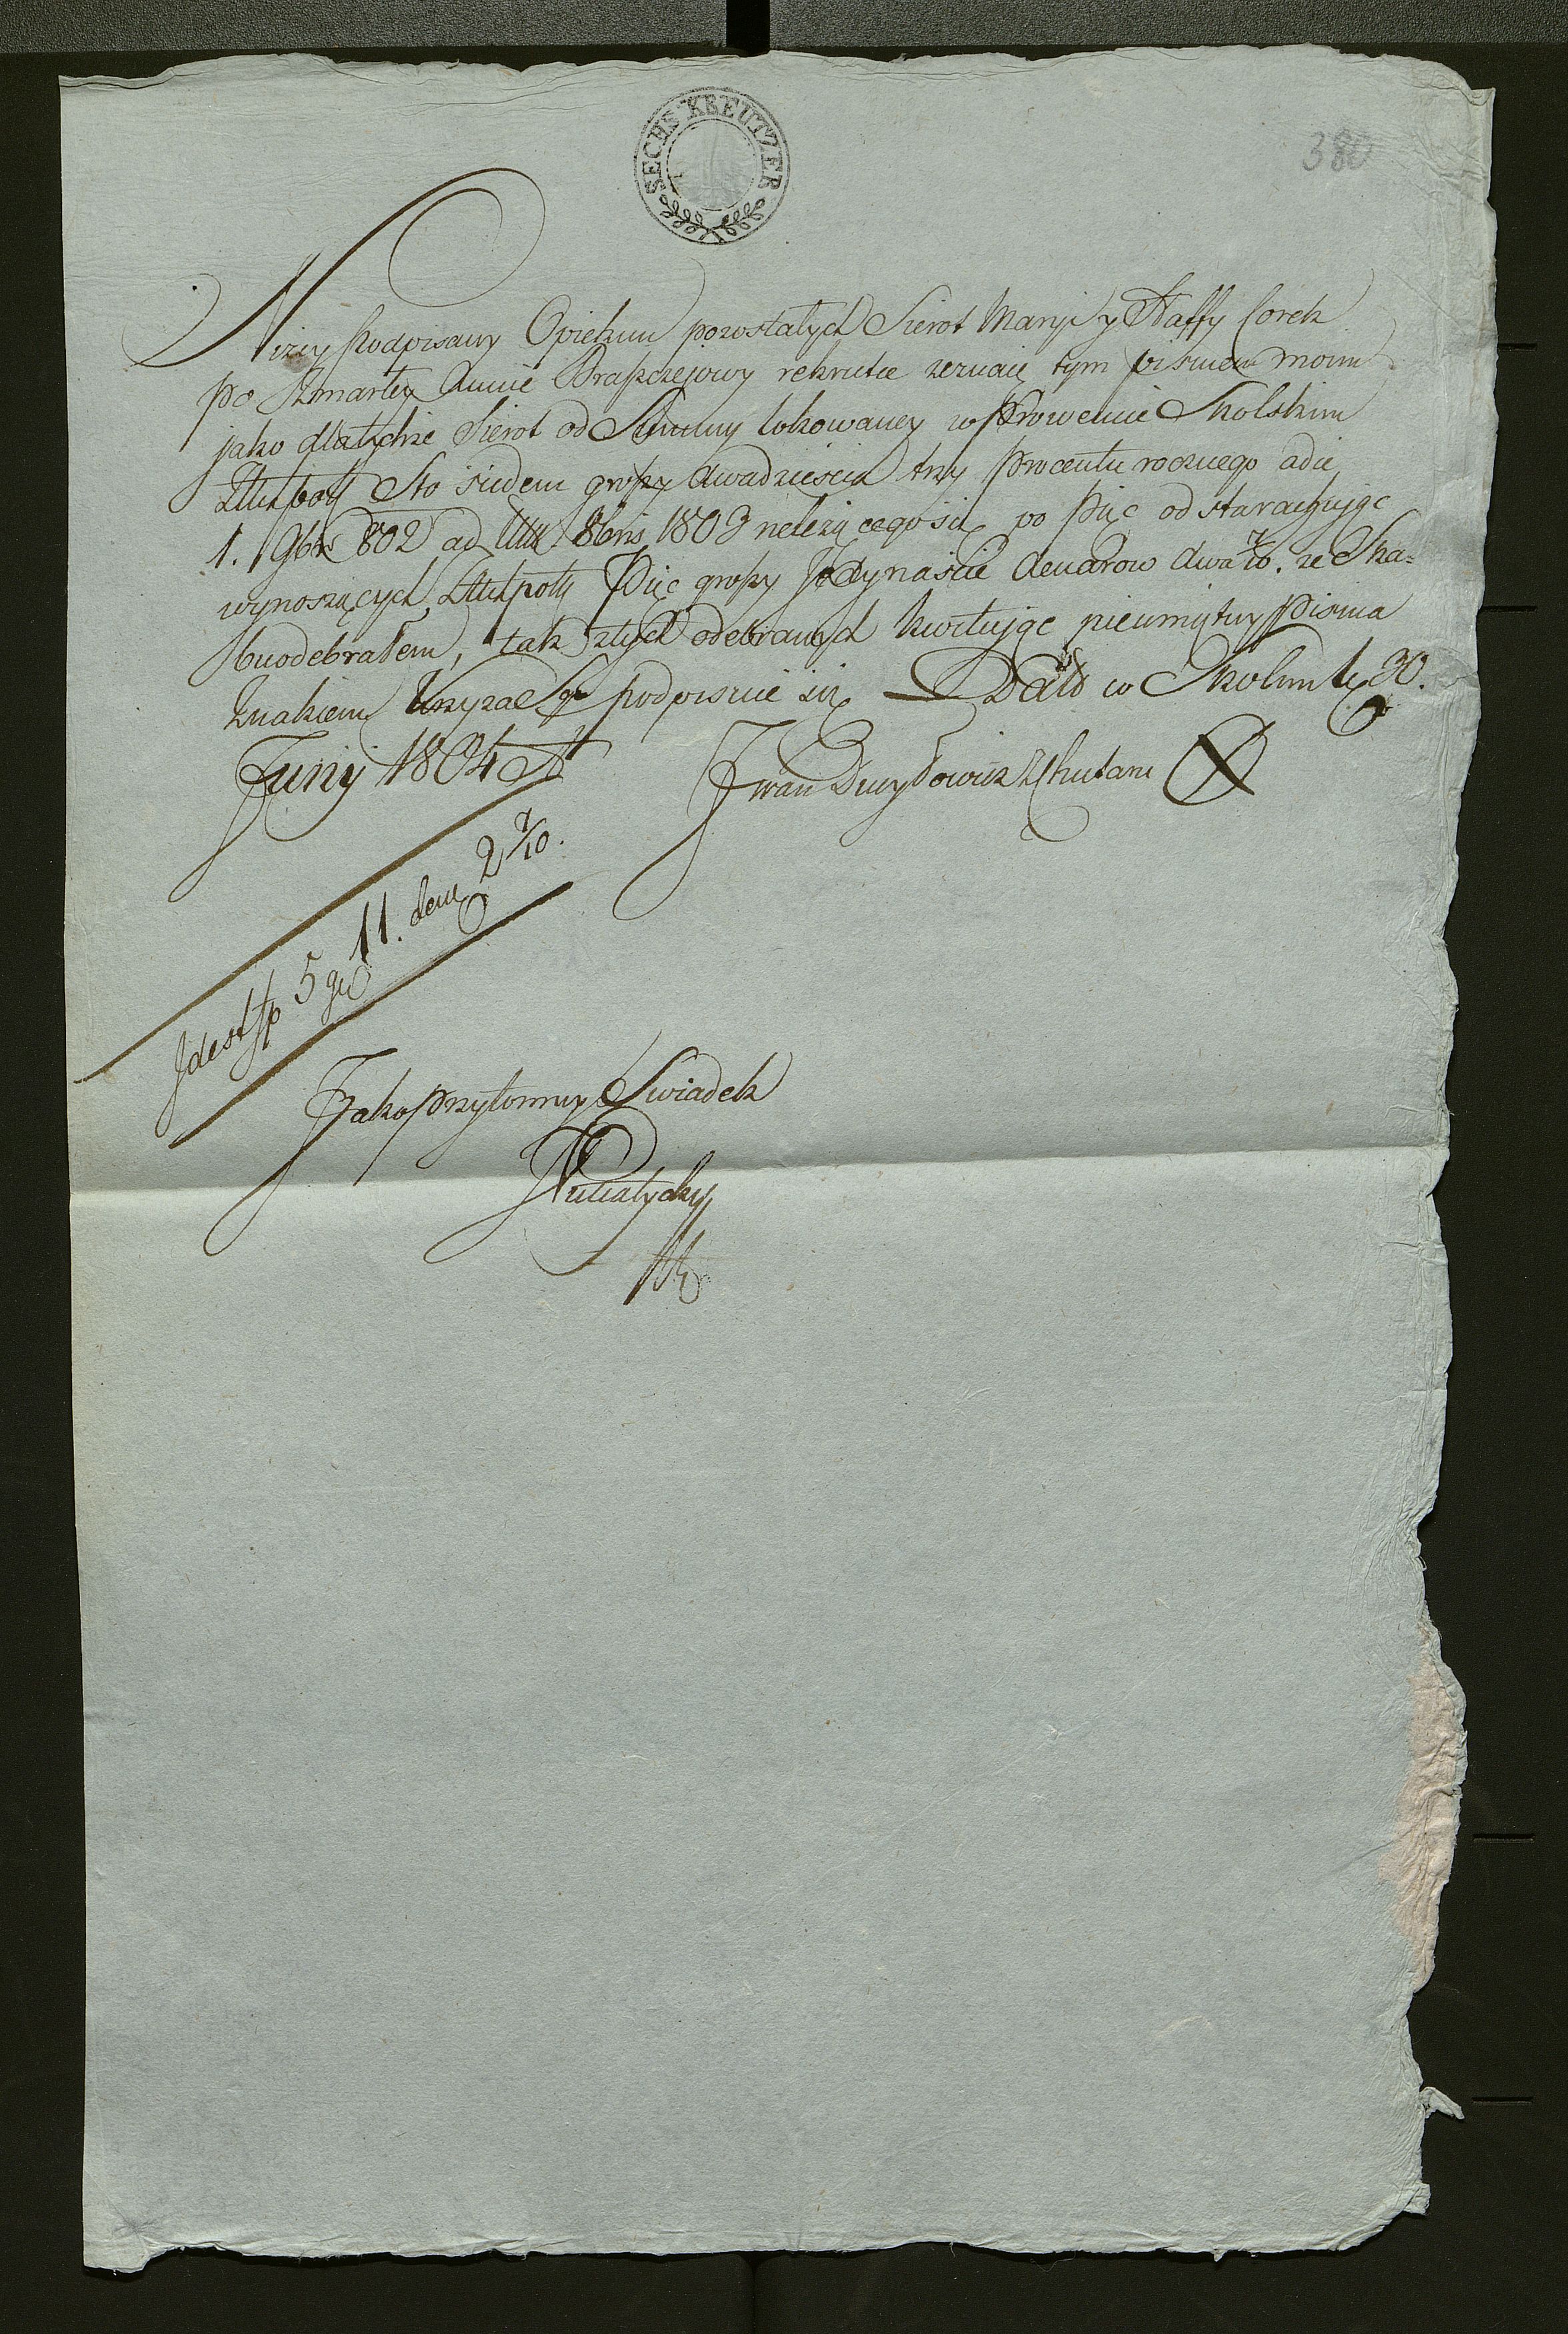 SECHS KREUTZER
380
Niżey Podpisany Opiekun pozostałych Sierot Maryi y Naffy Corek
po Zmarłey Annie Drapczejowy rekrutce zeznaię tym pismem moim
jako dla tychże Sierot od Summy lokowaney w Prowencie Skolskim
Złłchpolł Sto siedem groszy dwadziescia trzy Procentu rocznego a die
1. 9bris 802 ad Ultt. 8bris 1803 należącego się po Pięć od sta rachując
wynoszących Złłchpoll Pięć groszy Jedynaście denarow dwa 7/10. ze Ska-
rbu odebrałem, tak z tych odebranych kwituiąc nieumiętny Pisma
Znakiem Krzyża S. podpisuie się Datt w Skolim dnia 30.
Junij 1804
Iwan Dmytrowicz z Chutaru X
Id est fp 5 gr 11. den 2 7/10.
Jako Przytomny Swiadek